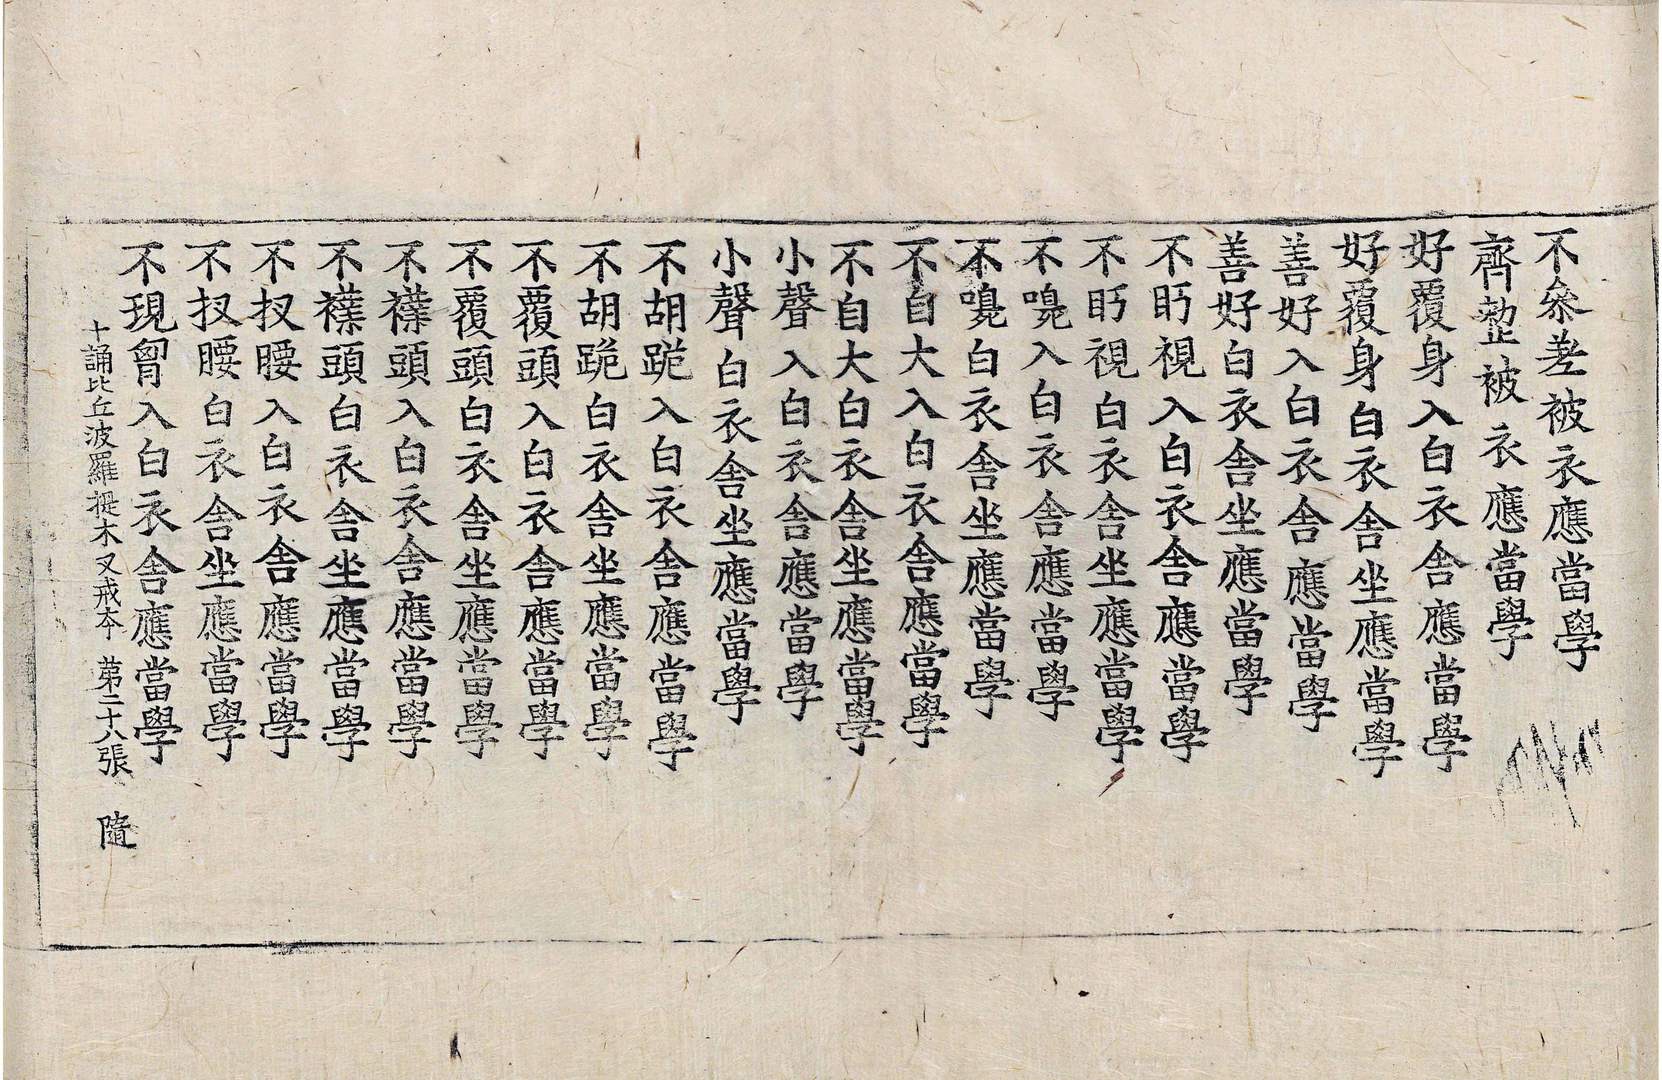 不叅差被衣應當學
齊整被衣應當學
好覆身入白衣舍應當學
好覆身白衣舍坐應當學
善好入白衣舍應當學
善好白衣舍坐應當學
不眄視入白衣舍應當學
不眄視白衣舍坐應當學
不嗅入白衣舍應當學
不嗅白衣舍坐應當學
不自大入白衣舍應當學
不自大白衣舍坐應當學
小聲入白衣舍應當學
小聲白衣舍坐應當學
不胡跪入白衣舍應當學
不胡跪白衣舍坐應當學
不覆頭入白衣舍應當學
不覆頭白衣舍坐應當學
不襆頭入白衣舍應當學
不襆頭白衣舍坐應當學
不扠腰入白衣舍應當學
不扠腰白衣舍坐應當學
不現胷入白衣舍應當學
十誦比丘波羅提木叉戒夲 苐二十八張 隨